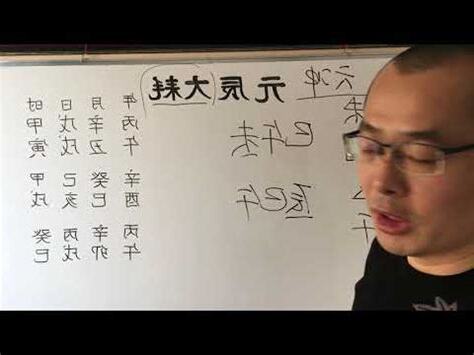 六冲
元辰(大耗)
未
巳午未
辰巳午
午
年月日时
丙辛戊甲
午丑戌寅
辛癸己甲
酉巳亥戌
丙辛丙癸
午卯戌巳